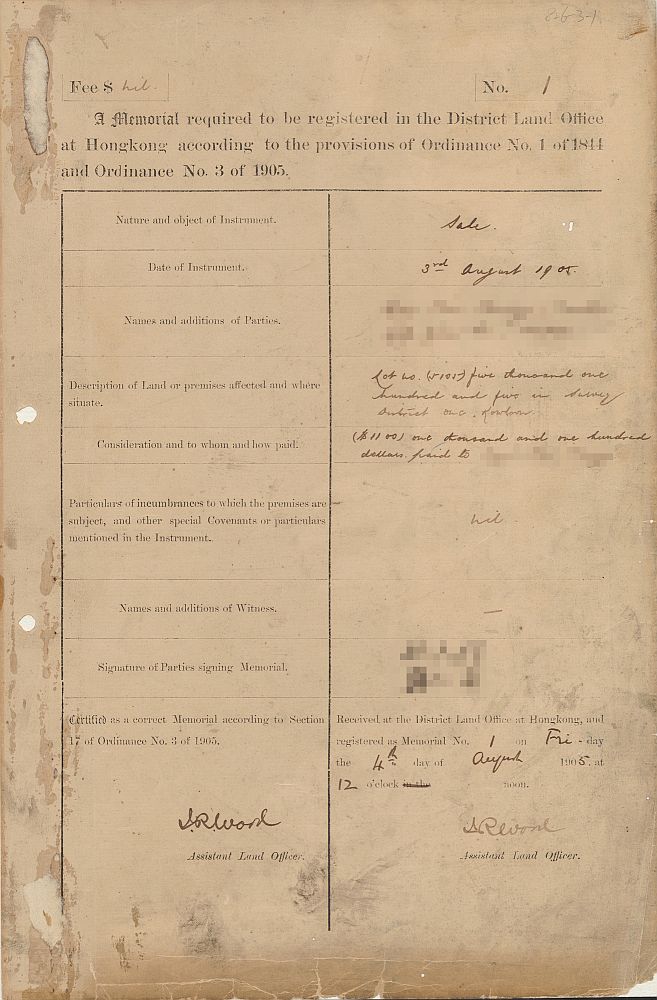 8-6-3-1
Fee $ nil.
No. 1
A Memorial required to be registered in the District Land Office
at Hongkong according to the provisions of Ordinance No. 1 of 1844
and Ordinance No. 3 of 1905.
Nature and object of Instrument.
Sale.
Date of Instrument.
3rd August 1905.
Names and additions of Parties.
Description of Land or premises affected and where
situate.
Lot no. (5105) five thousand one
hundred and five in Survey
District one, Kowloon
Consideration and to whom and how paid.
($1100) one thousand and one hundred
dollars. paid to
Particulars of incumbrances to which the premises are
subject, and other special Covenants or particulars
mentioned in the Instrument.
nil.
Names and additions of Witness.
—
Signature of Parties signing Memorial.
Certified as a correct Memorial according to Section
17 of Ordinance No. 3 of 1905.
Received at the District Land Office at Hongkong, and
registered as Memorial No. 1 on Fri-day
the 4th day of August 1905, at
12 o'clock in the noon.
J.R.Wood
Assistant Land Officer.
J.R.Wood
Assistant Land Officer.